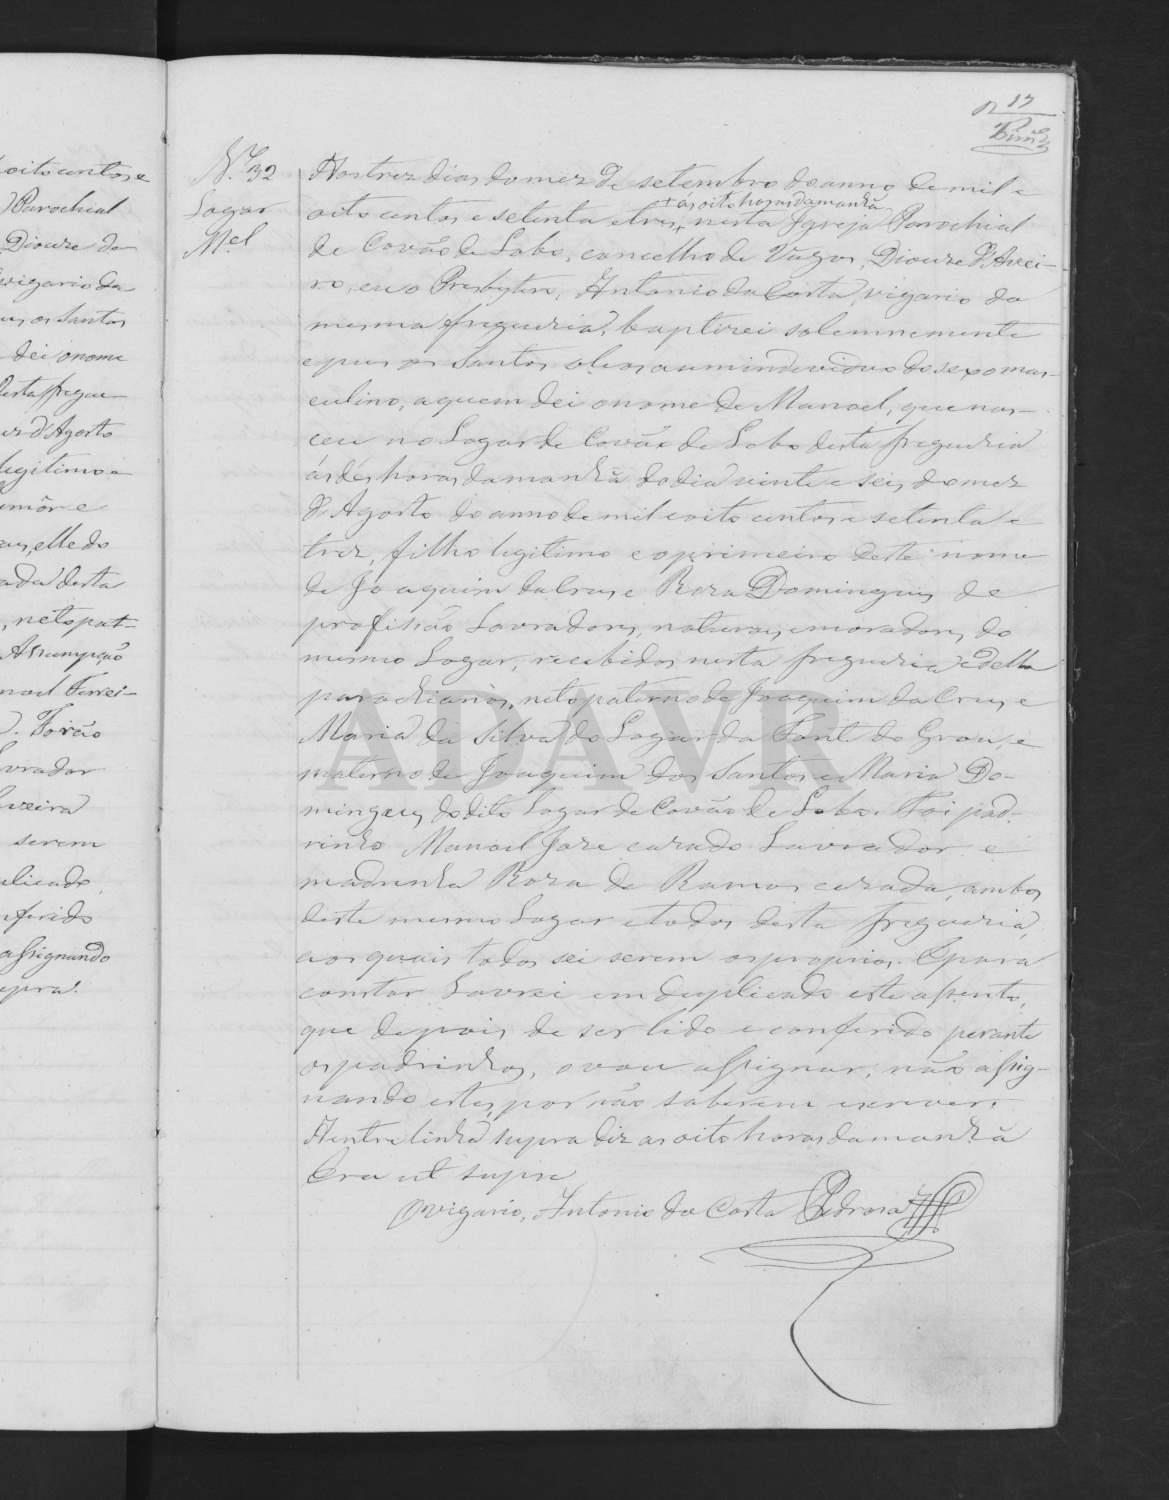 17
N.º 32
Logar
M.el
Aos trez dias do mez de setembro do anno de mil e
+ ás oito horas da manhã
oito centos e setenta e trez, + nesta Igreja Parochial
de Covão de Lobo, concelho de Vagos, Dioceze d'Avei-
ro, eu o Presbytero, Antonio da Costa, vigario da
mesma freguezia, baptizei solemnemente
e puz os Santos oleos a um individuo do sexo mas-
culino, a quem dei o nome de Manoel, que nas-
ceu no Logar de Covão de Lobo desta freguezia
ás déz horas da manhã do dia vinte e seis do mez
d'Agosto do anno de mil e oito centos e setenta e
trez, filho legitimo e o primeiro deste nome
de Joaquim da Cruz e Roza Domingues de
profissão Lavradores, naturaes e moradores do
mesmo Logar, recebidos nesta freguezia e della
parochianos, neto paterno de Joaquim da Cruz e
Maria da Silva do Logar da Fonte do Grou, e
materno de Joaquim dos Santos e Maria Do-
mingues, do dito Logar de Covão de Lobo. Foi pad-
rinho Manoel Joze cazado Lavrador e
madrinha Roza de Ramos cazada, ambos
deste mesmo Logar e todos desta freguezia,
aos quais todos sei serem os proprios. E para
constar Lavrei em duplicado este assento,
que depois de ser lido e conferido perante
os padrinhos, o vou assignar, não assig-
nando estes por não saberem escrever.
A entrelinha supra diz as oito horas da manhã
Era ut supra
O vigario, Antonio da Costa Pedrosa
oito centos e
Parochial
Dioceze de
vigario da
os Santos
dei o nome
desta fregue-
d'Agosto
legitimo e
e
elle do
desta
, neto pat-
Assumpção
noel Ferrei-
. Fovão
Lavrador
serem
plicado,
nferido
assignando
supra.
ADAVR